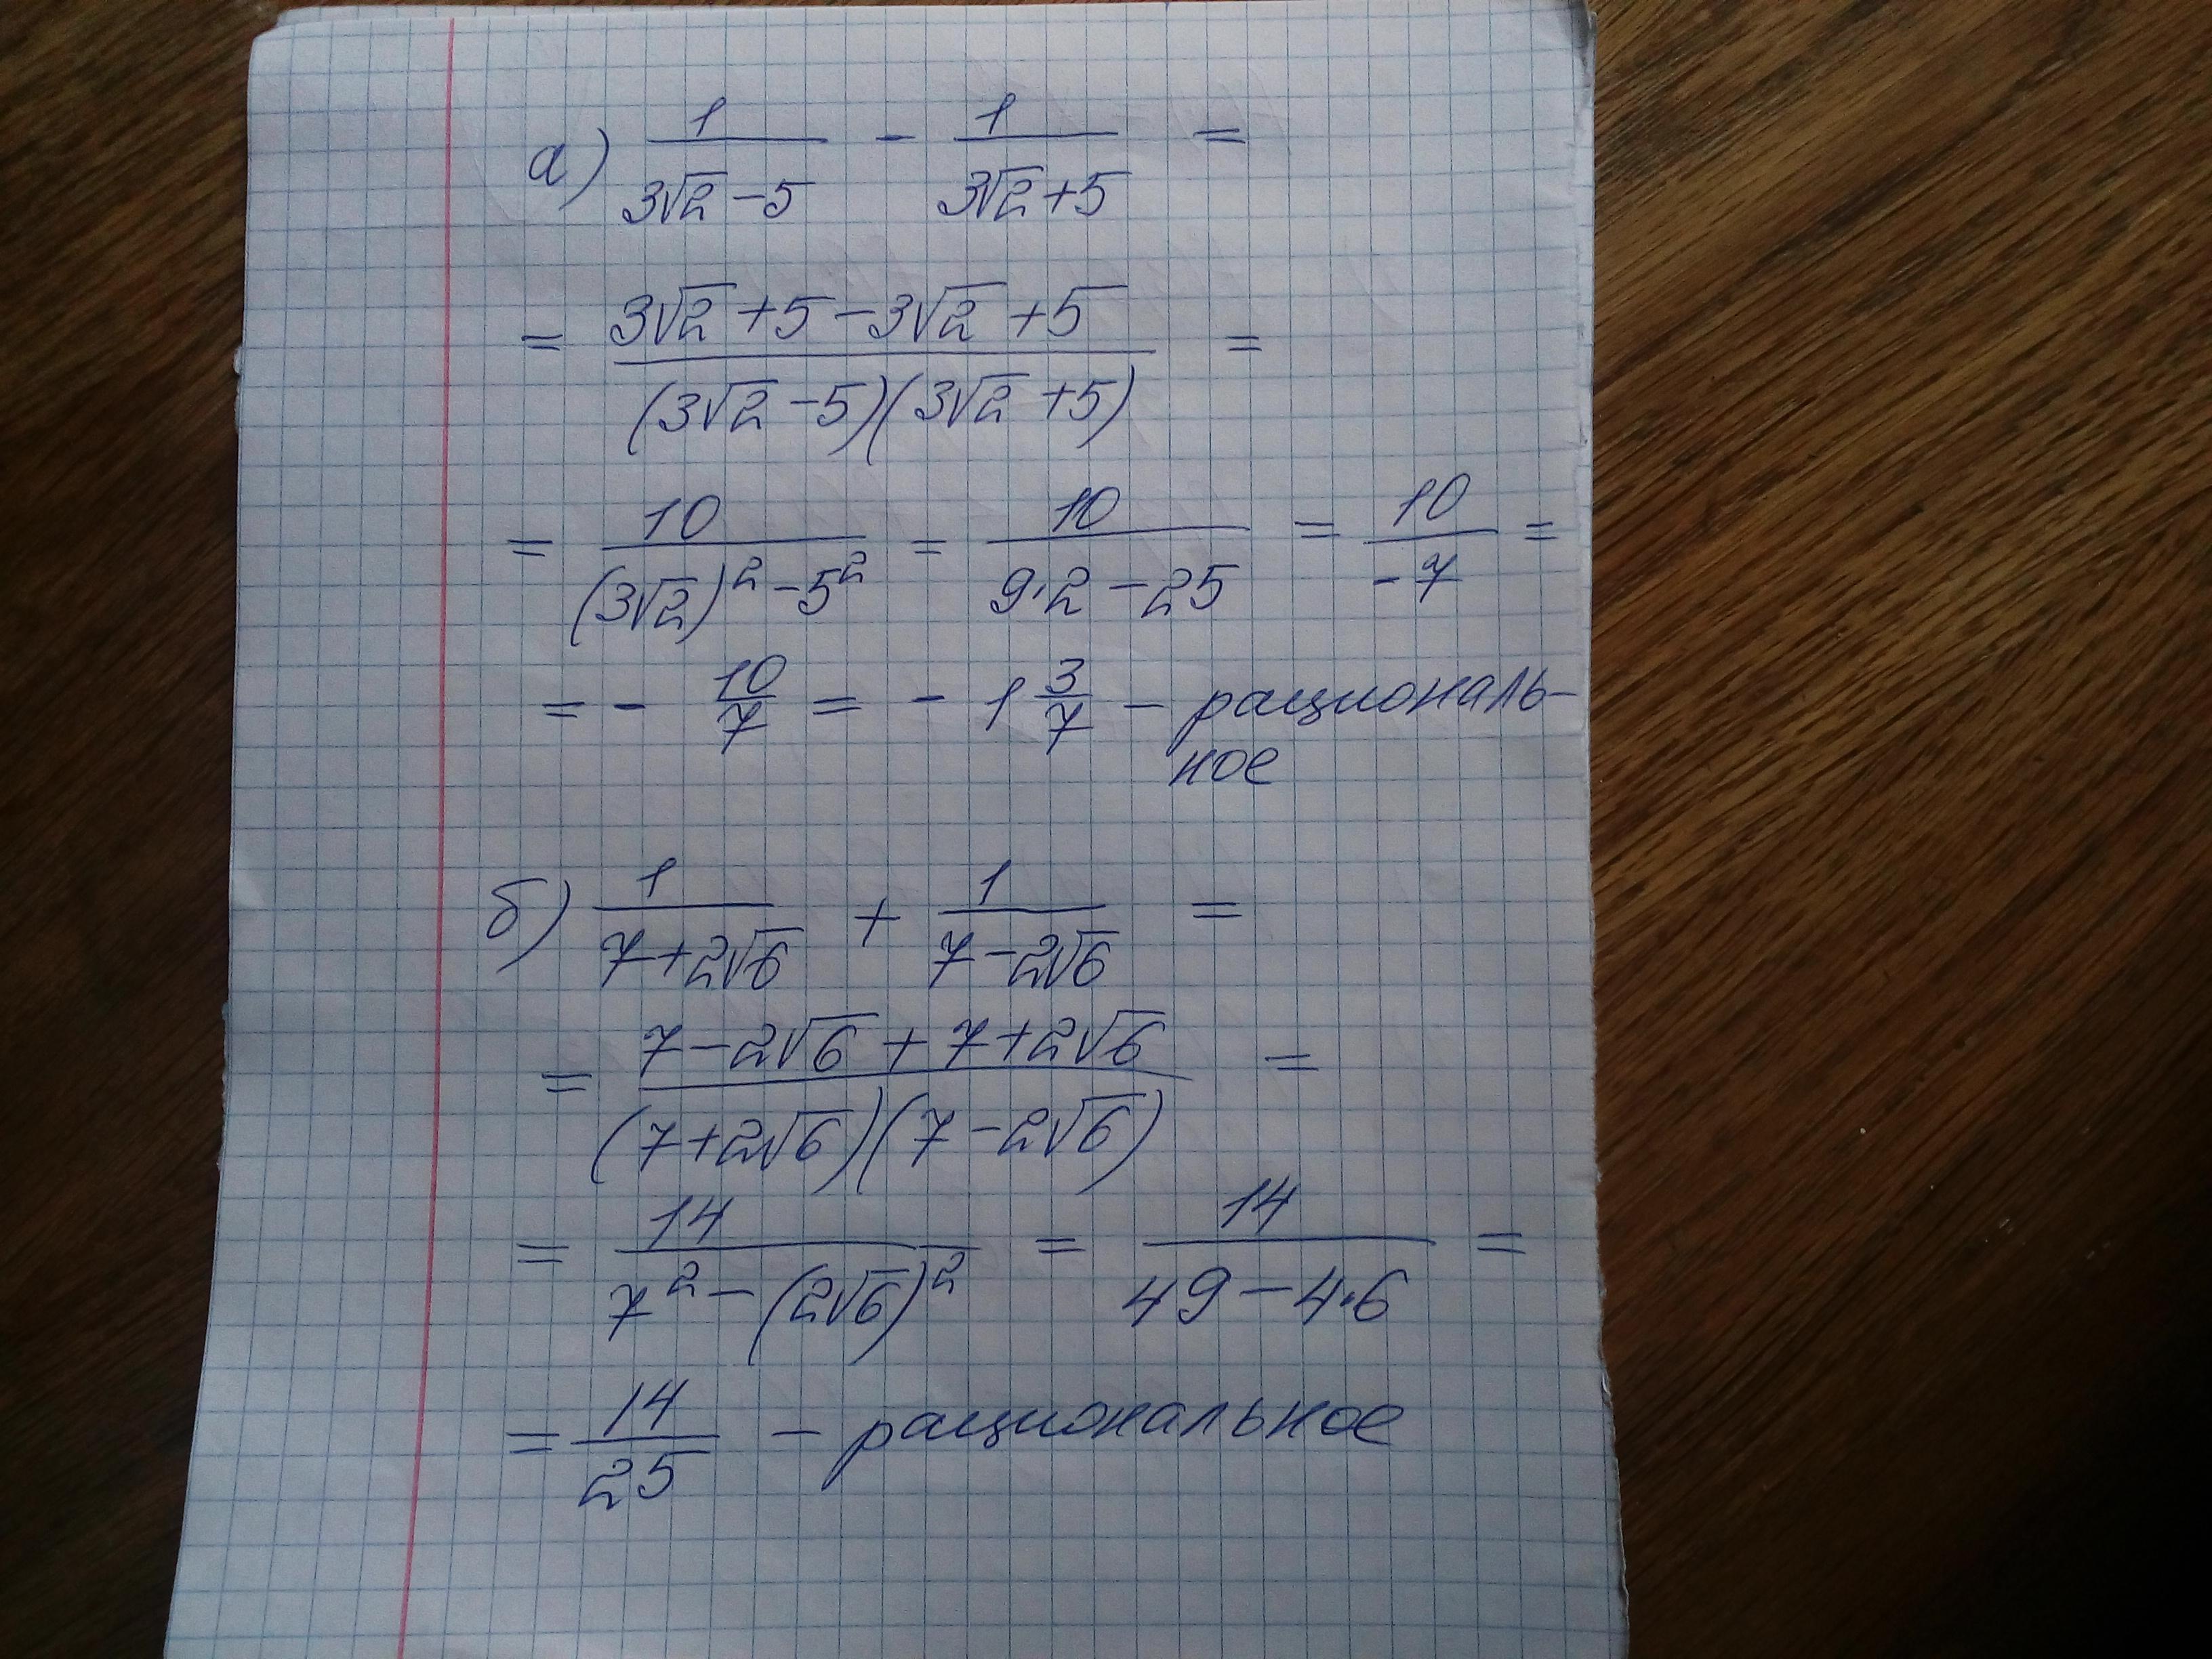 а) 1/(3√2 −5) - 1/(3√2 +5) =
= (3√2 +5 −3√2 +5)/((3√2 −5)(3√2 +5)) =
= 10/((3√2)² −5²) = 10/(9·2 −25) = 10/(-7) =
= - 10/7 = - 1 3/7 – рациональ-
ное
б) 1/(7+2√6) + 1/(7−2√6) =
= (7−2√6 + 7+2√6)/((7+2√6)(7−2√6)) =
= 14/(7² −(2√6)²) = 14/(49 −4·6) =
= 14/25 – рациональное